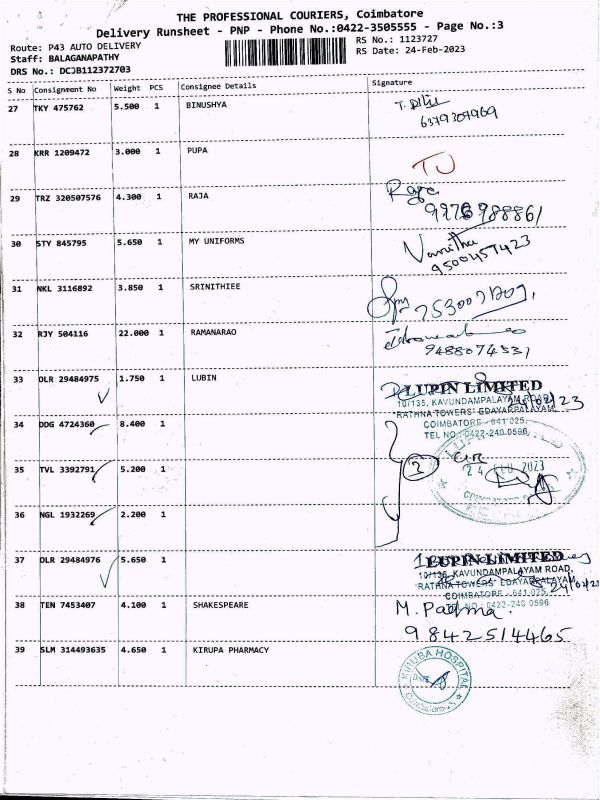 THE PROFESSIONAL COURIERS, Coimbatore
Delivery Runsheet - PNP - Phone No.:0422-3505555 - Page No.:3
Route: P43 AUTO DELIVERY
RS No.: 1123727
Staff: BALAGANAPATHY
RS Date: 24-Feb-2023
DRS No.: DCJB112372703
S No Consignment No Weight PCS Consignee Details Signature
27 TKY 475762 5.500 1 BINUSHYA
6379307969
28 KRR 1209472 3.000 1 PUPA
TJ
29 TRZ 320507576 4.300 1 RAJA Raja
30 STY 845795 5.650 1 MY UNIFORMS Vanitha
9500457423
31 NKL 3116892 3.850 1 SRINITHIEE
32 RJY 504116 22.000 1 RAMANARAO
9488074331
33 DLR 29484975 1.750 1 LUBIN
LUPIN LIMITED
10/135, KAVUNDAMPALAYAM ROAD,
RATHNA TOWERS' EDAYARPALAYAM,
COIMBATORE - 641 025.
TEL NO.:0422-240 0596
34 DDG 4724360 8.400 1
35 TVL 3392791 5.200 1 3
24 FEB 2023
36 NGL 1932269 2.200 1
37 DLR 29484976 5.650 1
LUPIN LIMITED
10/135, KAVUNDAMPALAYAM ROAD,
RATHNA TOWERS' EDAYARPALAYAM,
COIMBATORE - 641 025.
TEL NO.:0422-240 0596
38 TEN 7453407 4.100 1 SHAKESPEARE M. Padma.
9842514465
39 SLM 314493635 4.650 1 KIRUPA PHARMACY
KIRUBA HOSPITAL